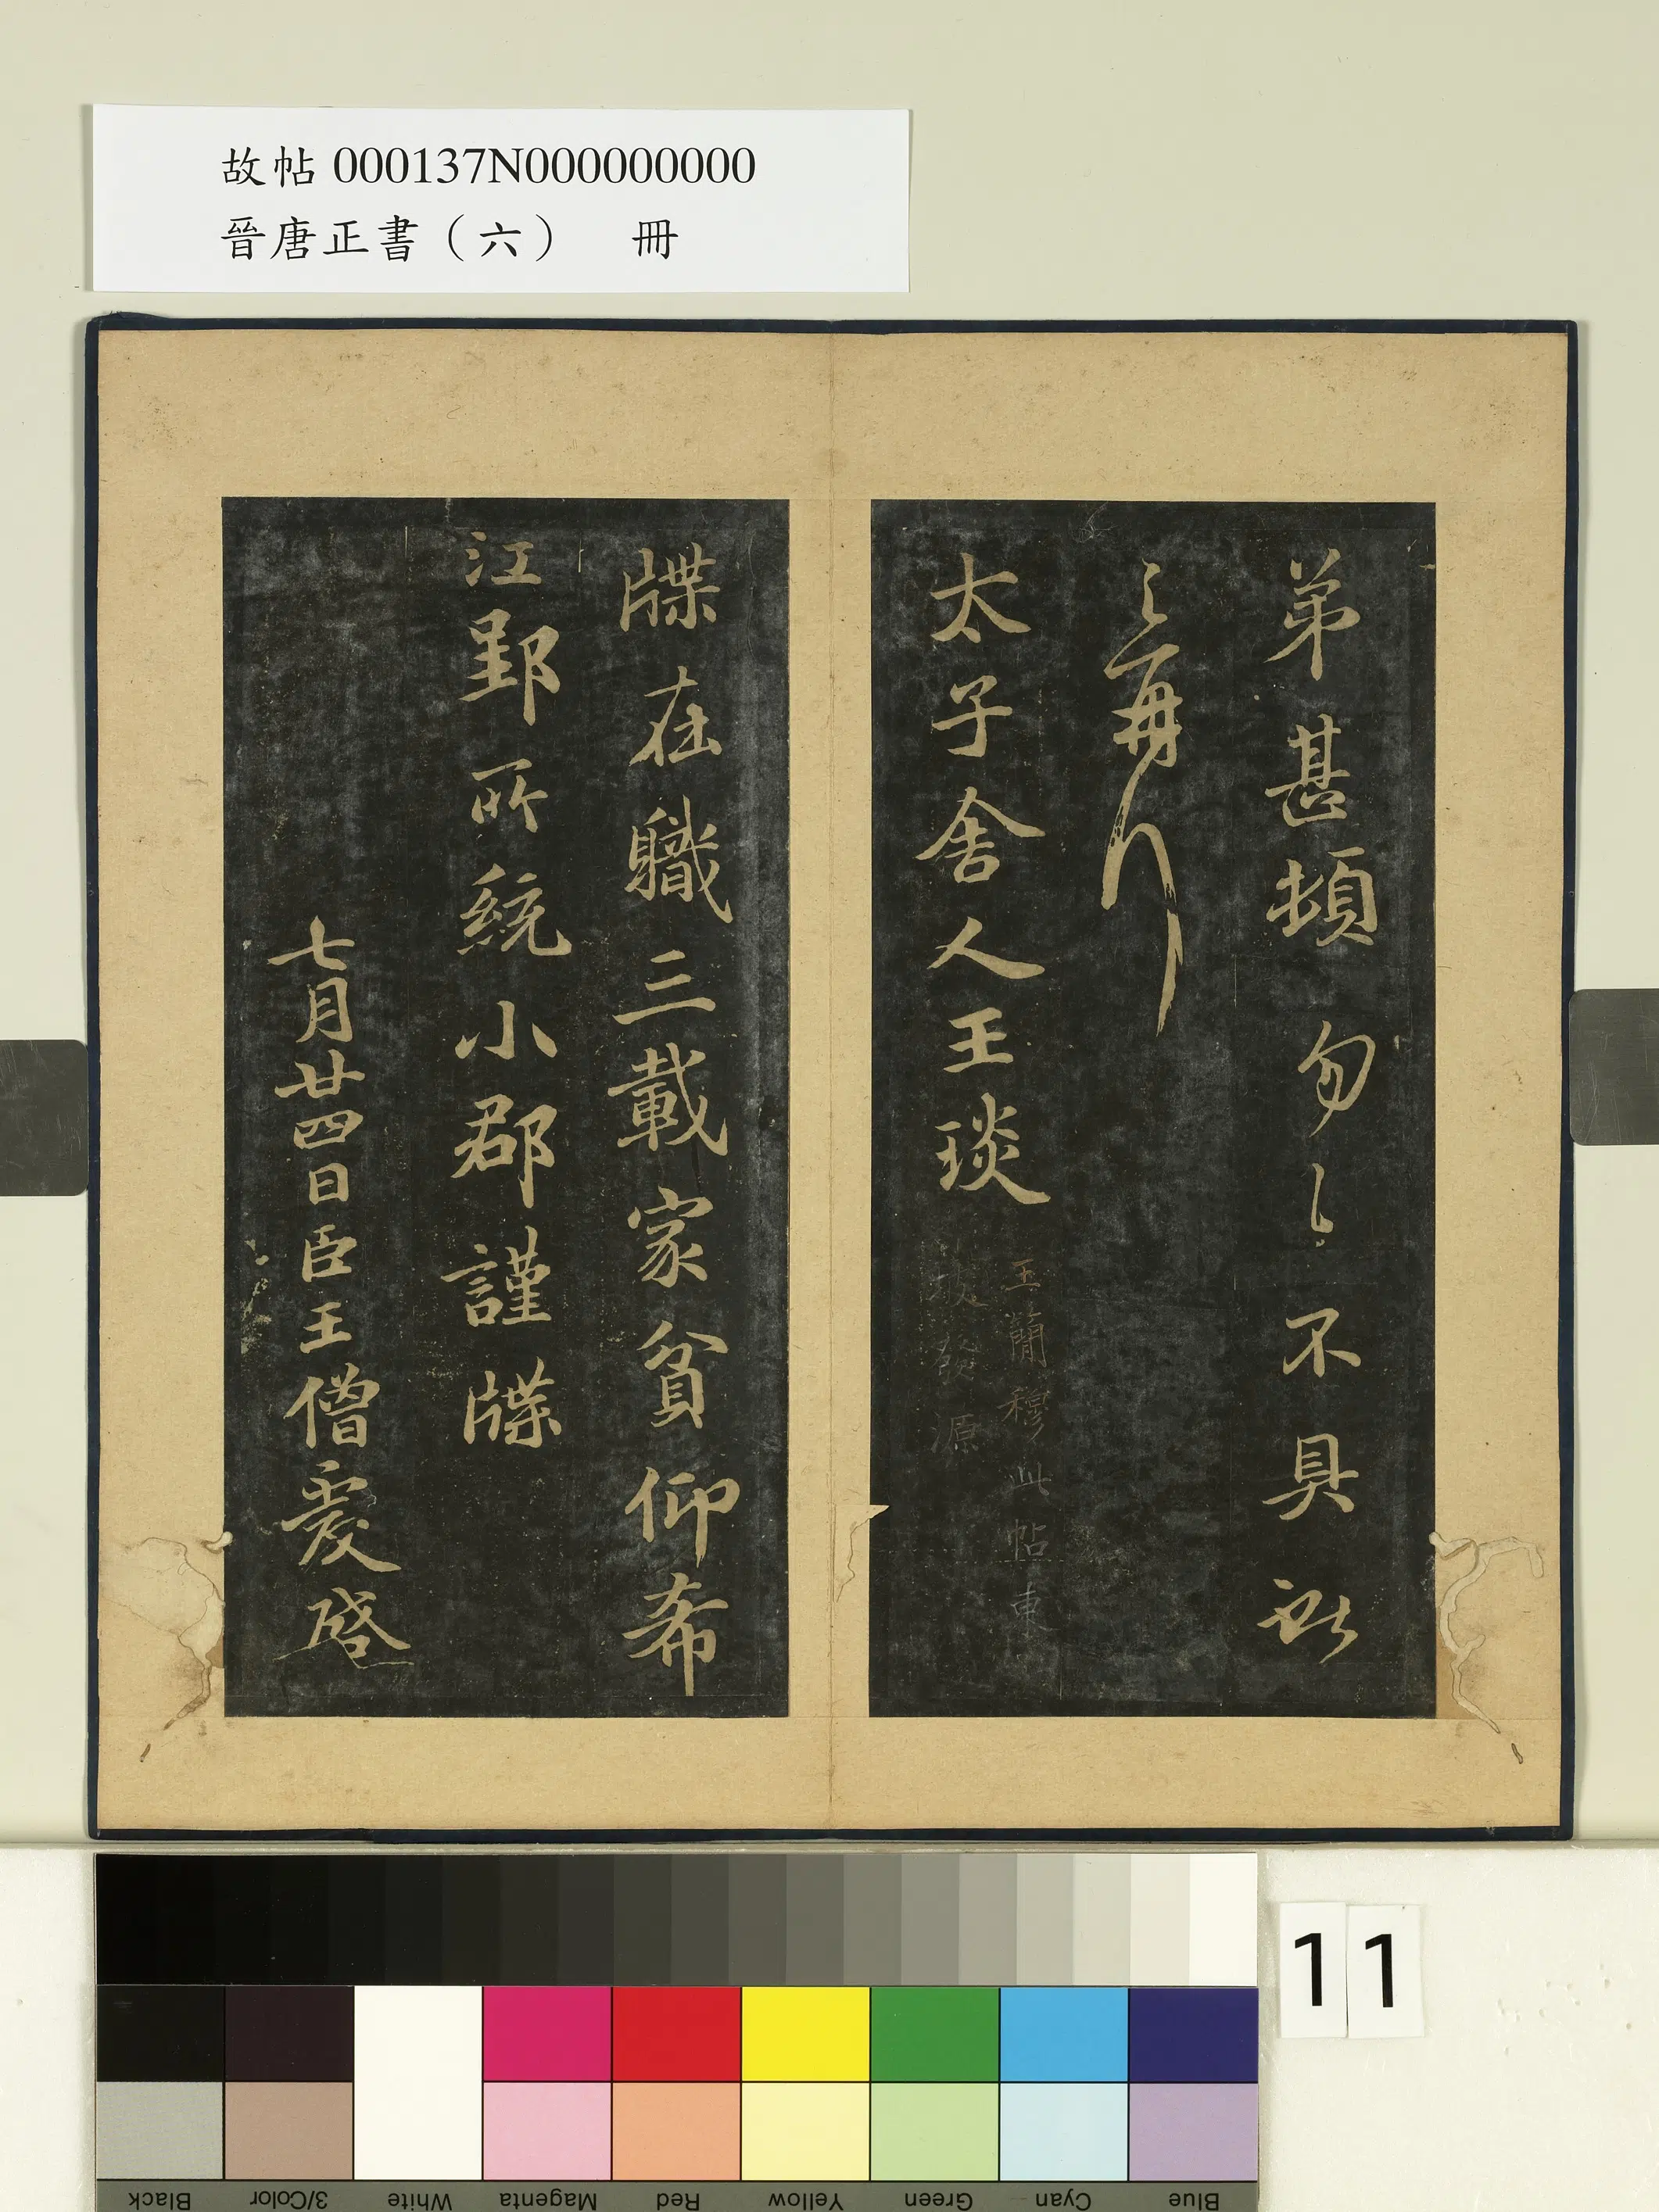 故帖 000137N000000000
晉唐正書（六） 冊
弟甚頓勿〻不具
再
太子舍人王琰
玉簡穆此帖東
坡發源
牒在職三載家貧仰希
江郢所統小郡謹牒
七月廿四日臣王僧虔啓
11
Blue Cyan Green Yellow Red Magenta White 3/Color Black